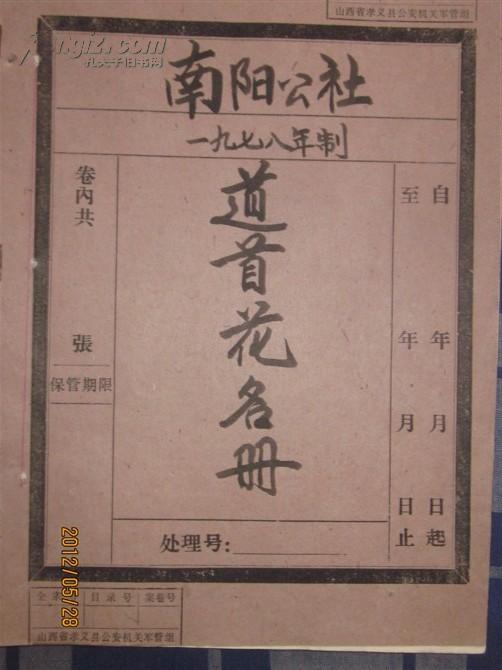 山西省孝义县公安机关军管组
孔夫子旧书网
南阳公社
一九七八年制
道首花名册
自 年 月 日起
至 年 月 日止
卷内共 張
保管期限
处理号:
全宗号 目录号 案卷号
山西省孝义县公安机关军管组
2012/05/28